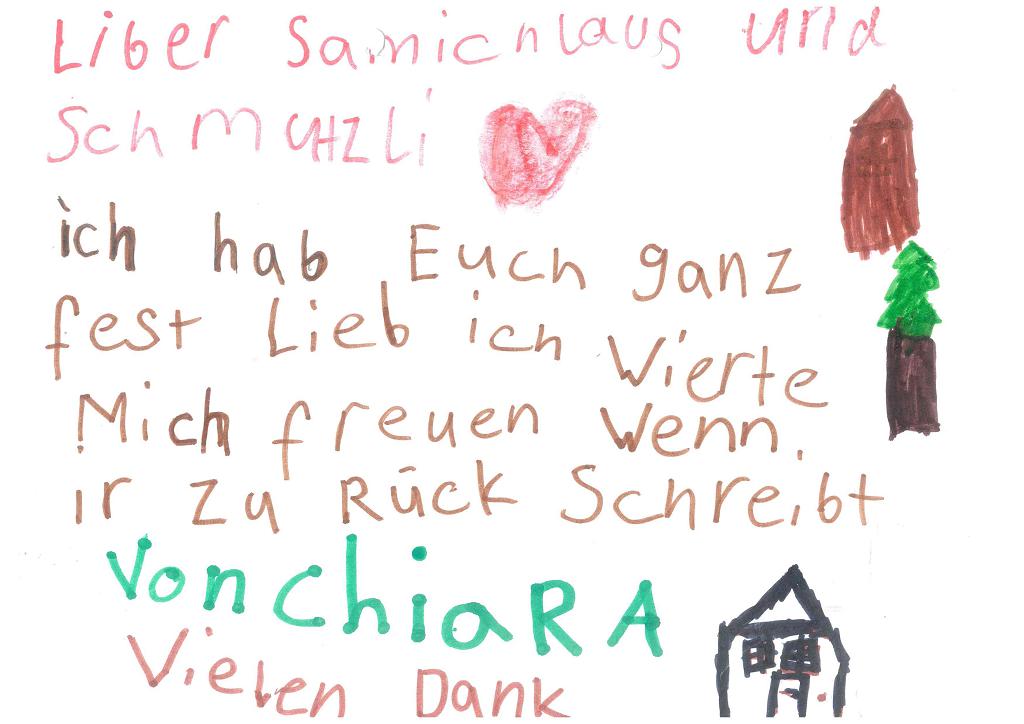 Liber Samichlaus und
Schmutzli
ich hab Euch ganz
fest Lieb ich Vierte
Mich freuen Wenn
ir zu Rück Schreibt
Von ChiaRA
Vielen Dank